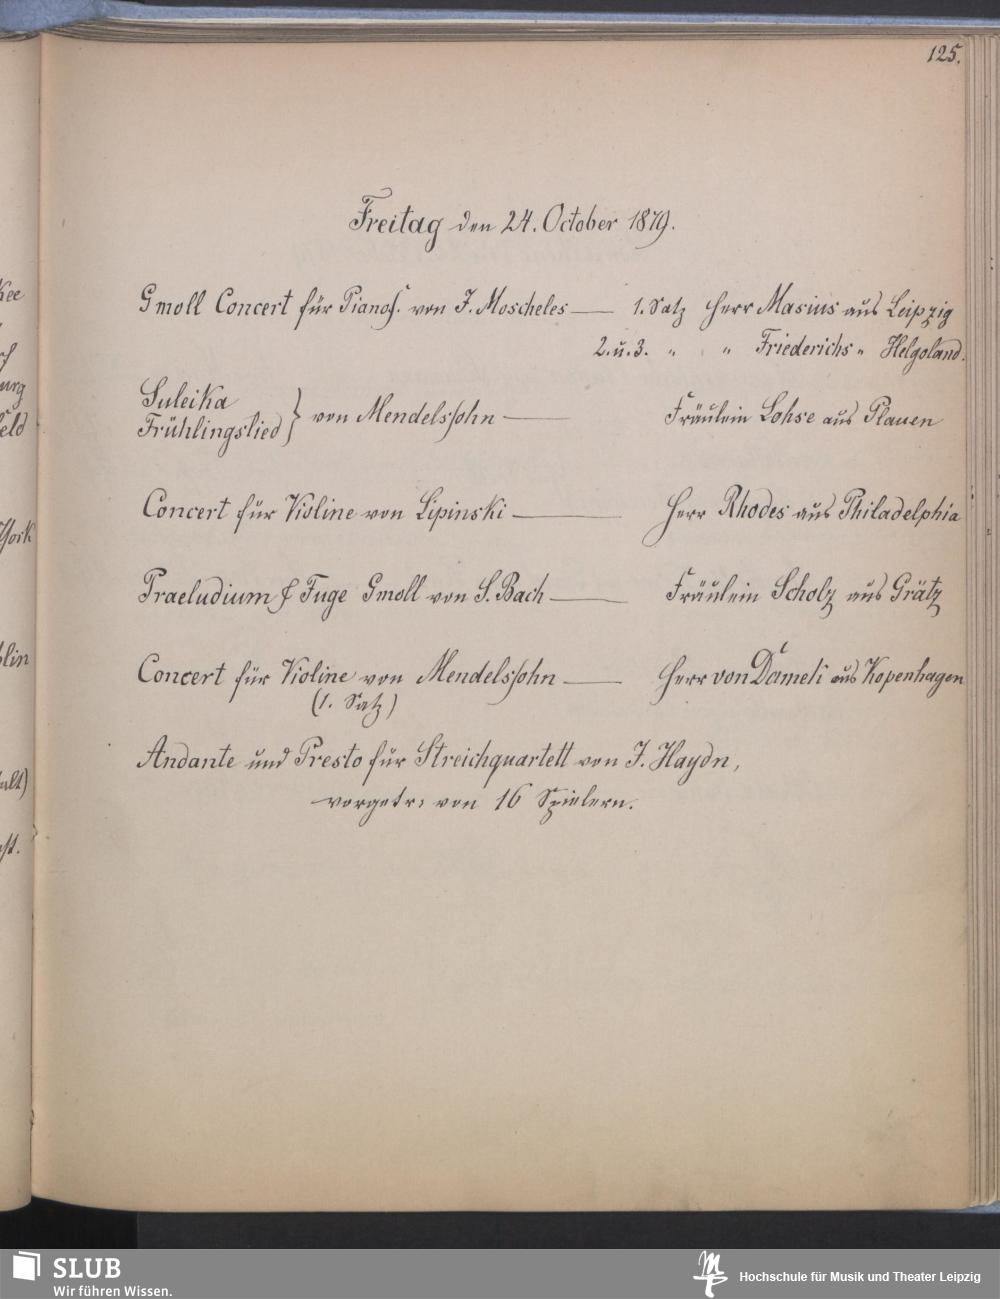 125.
Freitag den 24. October 1879.
Gmoll Concert für Pianof. von J. Moscheles — 1. Satz Herr Masius aus Leipzig
2. u. 3. " " Friederichs " Helgoland.
Suleika
Frühlingslied } von Mendelssohn — Fräulein Lohse aus Plauen
Concert für Violine von Lipinski — Herr Rhodes aus Philadelphia
Praeludium & Fuge Gmoll von S. Bach — Fräulein Scholz aus Grätz
Concert für Violine von Mendelssohn — Herr von Dameck aus Kopenhagen
(1. Satz)
Andante und Presto für Streichquartett von J. Haydn,
vorgetr: von 16 Spielern.
SLUB
Wir führen Wissen.
Hochschule für Musik und Theater Leipzig